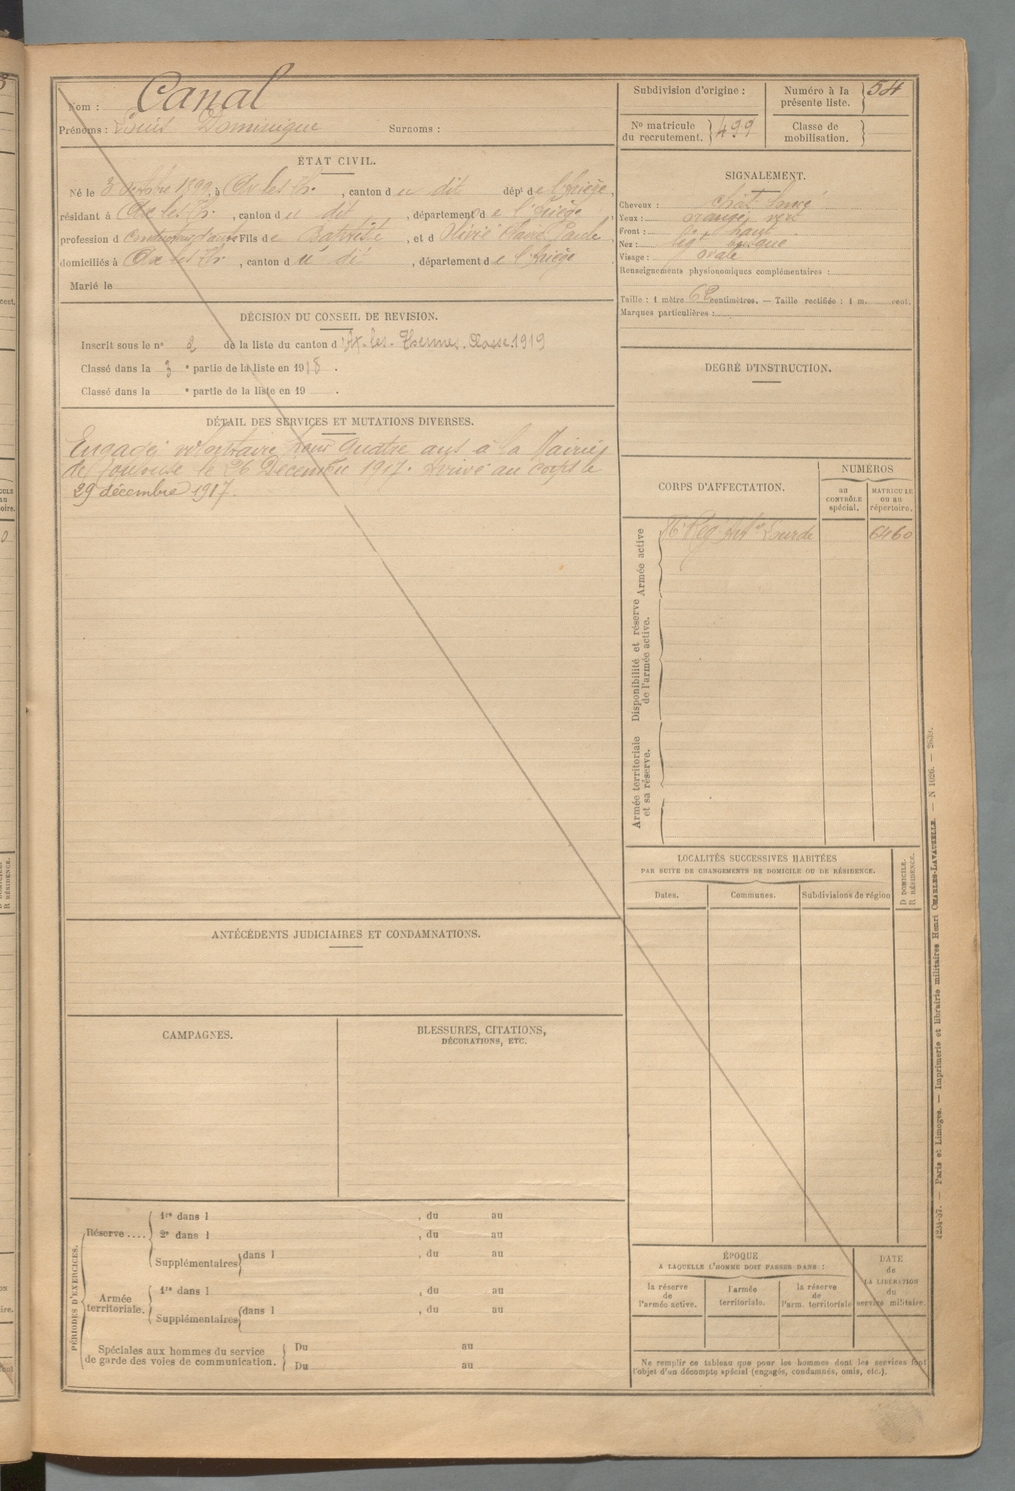 Nom : Canal
Prénoms : Louis Dominique Surnoms :
Subdivision d'origine :
Numéro à la présente liste. 54
No matricule du recrutement. 499
Classe de mobilisation.
ÉTAT CIVIL.
Né le 3 à Ax les Th. , canton d u dit dépt d e l'Ariège,
résidant à Ax les Th. , canton d u dit , département d e l'Ariège,
profession d Fils d e Baptiste , et d
domiciliés à Ax les Th , canton d u dit , département d e l'Ariège
Marié le
SIGNALEMENT.
Cheveux : chât
Yeux : orangé vert
Front : haut
Nez : busqué
Visage : ovale
Renseignements physionomiques complémentaires :
Taille : 1 mètre 62 centimètres. — Taille rectifiée : 1 m. cent.
Marques particulières :
DÉCISION DU CONSEIL DE REVISION.
Inscrit sous le no 2 de la liste du canton d 'Ax-les-Thermes. Classe 1919
Classé dans la 3 e partie de la liste en 1918 .
Classé dans la e partie de la liste en 19 .
DEGRÉ D'INSTRUCTION.
DÉTAIL DES SERVICES ET MUTATIONS DIVERSES.
Engagé volontaire pour quatre ans à la Mairie
de Toulouse le 26 Décembre 1917. Arrivé au corps le
29 décembre 1917.
CORPS D'AFFECTATION.
NUMÉROS
au contrôle spécial.
MATRICULE ou au répertoire.
Armée active
Régt Artie Lourde 6460
Disponibilité et réserve de l'armée active.
Armée territoriale et sa réserve.
LOCALITÉS SUCCESSIVES HABITÉES
PAR SUITE DE CHANGEMENTS DE DOMICILE OU DE RÉSIDENCE.
Dates. Communes. Subdivisions de région
D DOMICILE. R RÉSIDENCE.
ANTÉCÉDENTS JUDICIAIRES ET CONDAMNATIONS.
CAMPAGNES.
BLESSURES, CITATIONS,
DÉCORATIONS, ETC.
PÉRIODES D'EXERCICES.
Réserve ....
1re dans l , du au
2e dans l , du au
Supplémentaires dans l , du au
Armée territoriale.
1re dans l , du au
Supplémentaires dans l , du au
Spéciales aux hommes du service
de garde des voies de communication.
Du au
Du au
ÉPOQUE
A LAQUELLE L'HOMME DOIT PASSER DANS :
la réserve de l'armée active.
l'armée territoriale.
la réserve de l'arm. territoriale
DATE de LA LIBÉRATION du service militaire.
Ne remplir ce tableau que pour les hommes dont les services font
l'objet d'un décompte spécial (engagés, condamnés, omis, etc.).
Paris et Limoges. — Imprimerie et librairie militaires Henri CHARLES-LAVAUZELLE. — N 1026. —